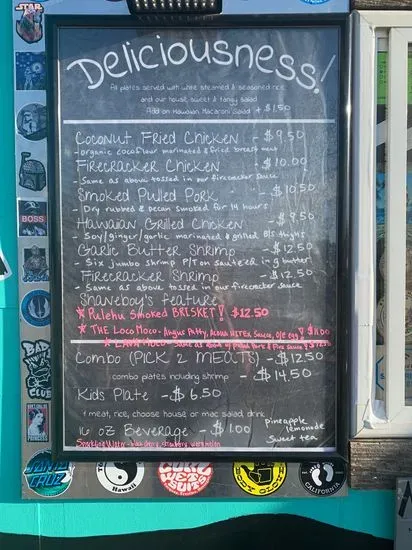 Deliciousness!
All plates served with white steamed & seasoned rice
and our house sweet & tangy salad
Add on Hawaiian Macaroni Salad + $1.50
Coconut Fried Chicken - $9.50
- organic coco flour marinated & fried breast meat
Firecracker Chicken - $10.00
- Same as above tossed in our firecracker sauce
Smoked Pulled Pork - $10.50
- Dry rubbed & pecan smoked for 14 hours
Hawaiian Grilled Chicken - $9.50
- Soy/ginger/garlic marinated & grilled B/S thighs
Garlic Butter Shrimp - $12.50
- Six jumbo shrimp P/T on sauteéd in g butter
Firecracker Shrimp - $12.50
- Same as above tossed in our firecracker sauce
Shaneboy's feature
★ Pulehu Smoked BRISKET! $12.50
★ THE LOCO MOCO - Angus Patty, Sauce, O/E egg! $11.00
★ LAVA MOCO - Same as above w/ Pulled Pork & Fire Sauce
Combo (PICK 2 MEATS) - $12.50
combo plates including shrimp - $14.50
Kids Plate - $6.50
1 meat, rice, choose house or mac salad, drink
16 oz Beverage - $1.00
pineapple
lemonade
sweet tea
Sparkling Water - black cherry, strawberry, watermelon
STAR
BOSS
BAD
CLUB
PRINCESS
SANTA
CRUZ
Hawaii
WET
SUITS
CALIFORNIA